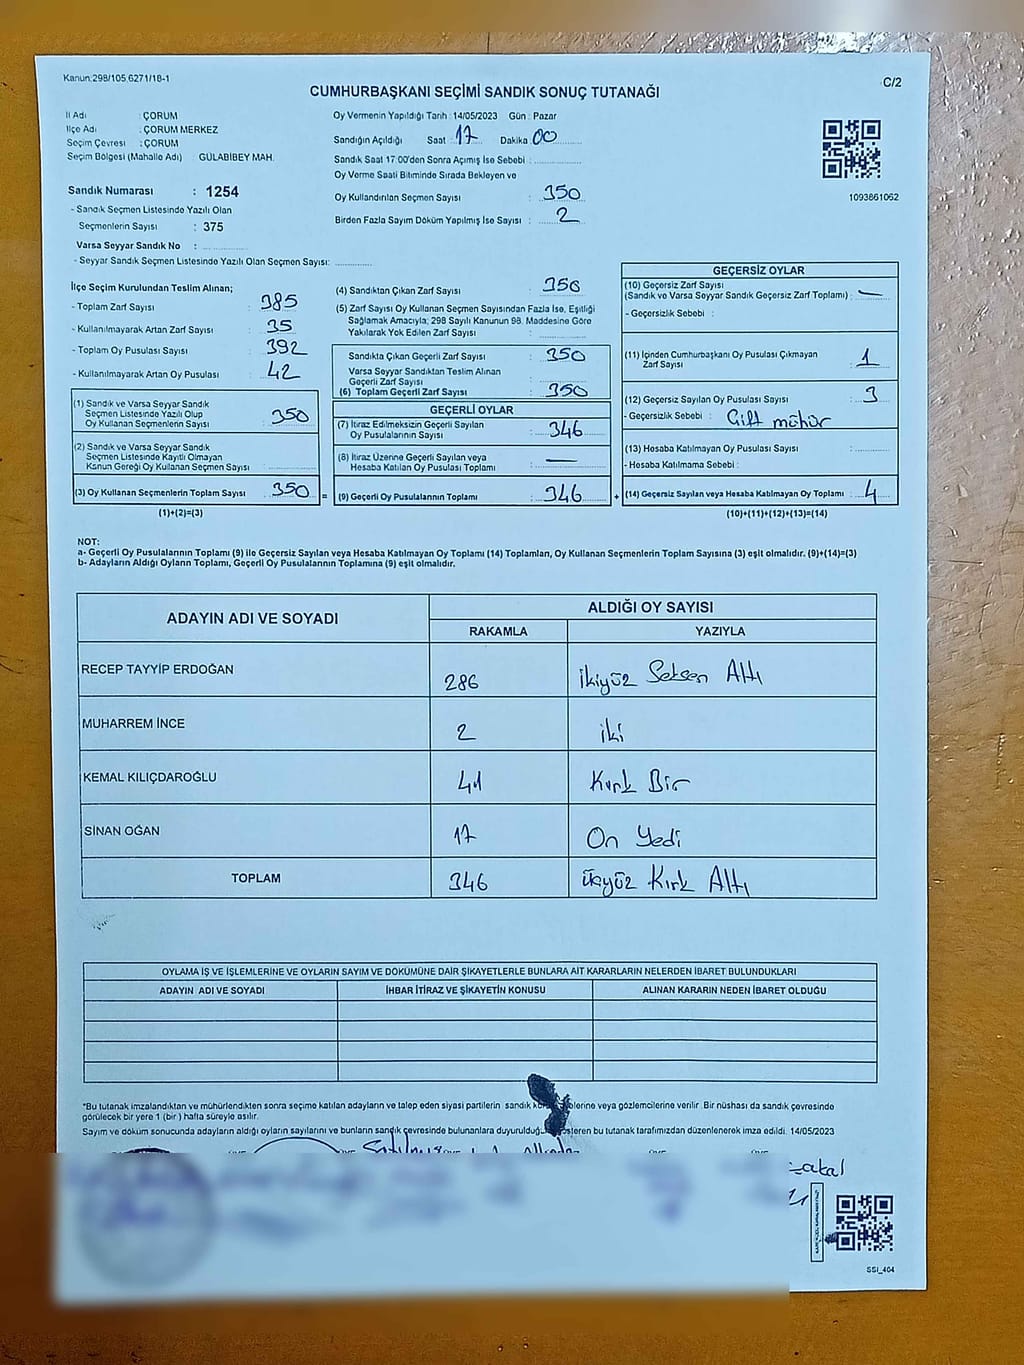 Kanun:298/105,6271/18-1
C/2
CUMHURBAŞKANI SEÇİMİ SANDIK SONUÇ TUTANAĞI
İl Adı : ÇORUM
İlçe Adı : ÇORUM MERKEZ
Seçim Çevresi : ÇORUM
Seçim Bölgesi (Mahalle Adı) GÜLABİBEY MAH.
Sandık Numarası : 1254
- Sandık Seçmen Listesinde Yazılı Olan
Seçmenlerin Sayısı : 375
Varsa Seyyar Sandık No :
- Seyyar Sandık Seçmen Listesinde Yazılı Olan Seçmen Sayısı:
Oy Vermenin Yapıldığı Tarih : 14/05/2023 Gün : Pazar
Sandığın Açıldığı Saat 17 Dakika 00
Sandık Saat 17:00'den Sonra Açımış İse Sebebi :
Oy Verme Saati Bitiminde Sırada Bekleyen ve
Oy Kullandırılan Seçmen Sayısı : 350
Birden Fazla Sayım Döküm Yapılmış İse Sayısı : 2
1093861062
İlçe Seçim Kurulundan Teslim Alınan;
- Toplam Zarf Sayısı : 385
- Kullanılmayarak Artan Zarf Sayısı : 35
- Toplam Oy Pusulası Sayısı : 392
- Kullanılmayarak Artan Oy Pusulası : 42
(1) Sandık ve Varsa Seyyar Sandık
Seçmen Listesinde Yazılı Olup
Oy Kullanan Seçmenlerin Sayısı : 350
(2) Sandık ve Varsa Seyyar Sandık
Seçmen Listesinde Kayıtlı Olmayan
Kanun Gereği Oy Kullanan Seçmen Sayısı :
(3) Oy Kullanan Seçmenlerin Toplam Sayısı : 350
(1)+(2)=(3)
(4) Sandıktan Çıkan Zarf Sayısı : 350
(5) Zarf Sayısı Oy Kullanan Seçmen Sayısından Fazla İse, Eşitliği
Sağlamak Amacıyla; 298 Sayılı Kanunun 98. Maddesine Göre
Yakılarak Yok Edilen Zarf Sayısı :
Sandıkta Çıkan Geçerli Zarf Sayısı : 350
Varsa Seyyar Sandıktan Teslim Alınan
Geçerli Zarf Sayısı :
(6) Toplam Geçerli Zarf Sayısı : 350
GEÇERLİ OYLAR
(7) İtiraz Edilmeksizin Geçerli Sayılan
Oy Pusulalarının Sayısı : 346
(8) İtiraz Üzerine Geçerli Sayılan veya
Hesaba Katılan Oy Pusulası Toplamı : —
= (9) Geçerli Oy Pusulalarının Toplamı : 346 +
GEÇERSİZ OYLAR
(10) Geçersiz Zarf Sayısı
(Sandık ve Varsa Seyyar Sandık Geçersiz Zarf Toplamı) : —
- Geçersizlik Sebebi :
(11) İçinden Cumhurbaşkanı Oy Pusulası Çıkmayan
Zarf Sayısı : 1
(12) Geçersiz Sayılan Oy Pusulası Sayısı : 3
- Geçersizlik Sebebi : Çift mühür
(13) Hesaba Katılmayan Oy Pusulası Sayısı :
- Hesaba Katılmama Sebebi :
(14) Geçersiz Sayılan veya Hesaba Katılmayan Oy Toplamı : 4
(10)+(11)+(12)+(13)=(14)
NOT:
a- Geçerli Oy Pusulalarının Toplamı (9) ile Geçersiz Sayılan veya Hesaba Katılmayan Oy Toplamı (14) Toplamları, Oy Kullanan Seçmenlerin Toplam Sayısına (3) eşit olmalıdır. (9)+(14)=(3)
b- Adayların Aldığı Oyların Toplamı, Geçerli Oy Pusulalarının Toplamına (9) eşit olmalıdır.
ADAYIN ADI VE SOYADI
ALDIĞI OY SAYISI
RAKAMLA YAZIYLA
RECEP TAYYİP ERDOĞAN 286 İkiyüz Seksen Altı
MUHARREM İNCE 2 iki
KEMAL KILIÇDAROĞLU 41 Kırk Bir
SİNAN OĞAN 17 On Yedi
TOPLAM 346 üçyüz Kırk Altı
OYLAMA İŞ VE İŞLEMLERİNE VE OYLARIN SAYIM VE DÖKÜMÜNE DAİR ŞİKAYETLERLE BUNLARA AİT KARARLARIN NELERDEN İBARET BULUNDUKLARI
ADAYIN ADI VE SOYADI İHBAR İTİRAZ VE ŞİKAYETİN KONUSU ALINAN KARARIN NEDEN İBARET OLDUĞU
*Bu tutanak imzalandıktan ve mühürlendikten sonra seçime katılan adayların ve talep eden siyasi partilerin sandık veya gözlemcilerine verilir. Bir nüshası da sandık çevresinde
görülecek bir yere 1 (bir) hafta süreyle asılır.
Sayım ve döküm sonucunda adayların aldığı oyların sayılarını ve bunların sandık çevresinde bulunanlara duyurulduğunu gösteren bu tutanak tarafımızdan düzenlenerek imza edildi. 14/05/2023
SSI_404